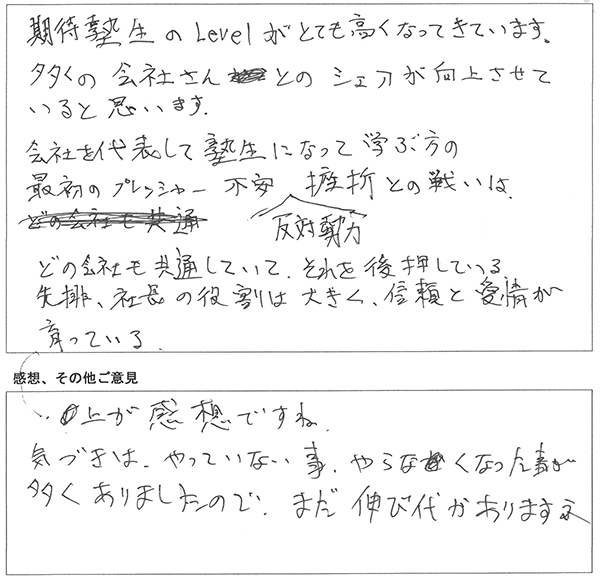 期待塾生のLevelがとても高くなってきています。
多くの会社さんとのシェアが向上させて
いると思います。
会社を代表して塾生になって学ぶ方の
最初のプレッシャー 不安 挫折との戦いは、
どの会社も共通
反対動力
どの会社も共通していて、それを後押している
先排、社長の役割は大きく、信頼と愛情が
育っている。
感想、その他ご意見
上が感想ですね。
気づきは、やっていない事、やらなくなった事が
多くありましたので、まだ伸び代がありますネ